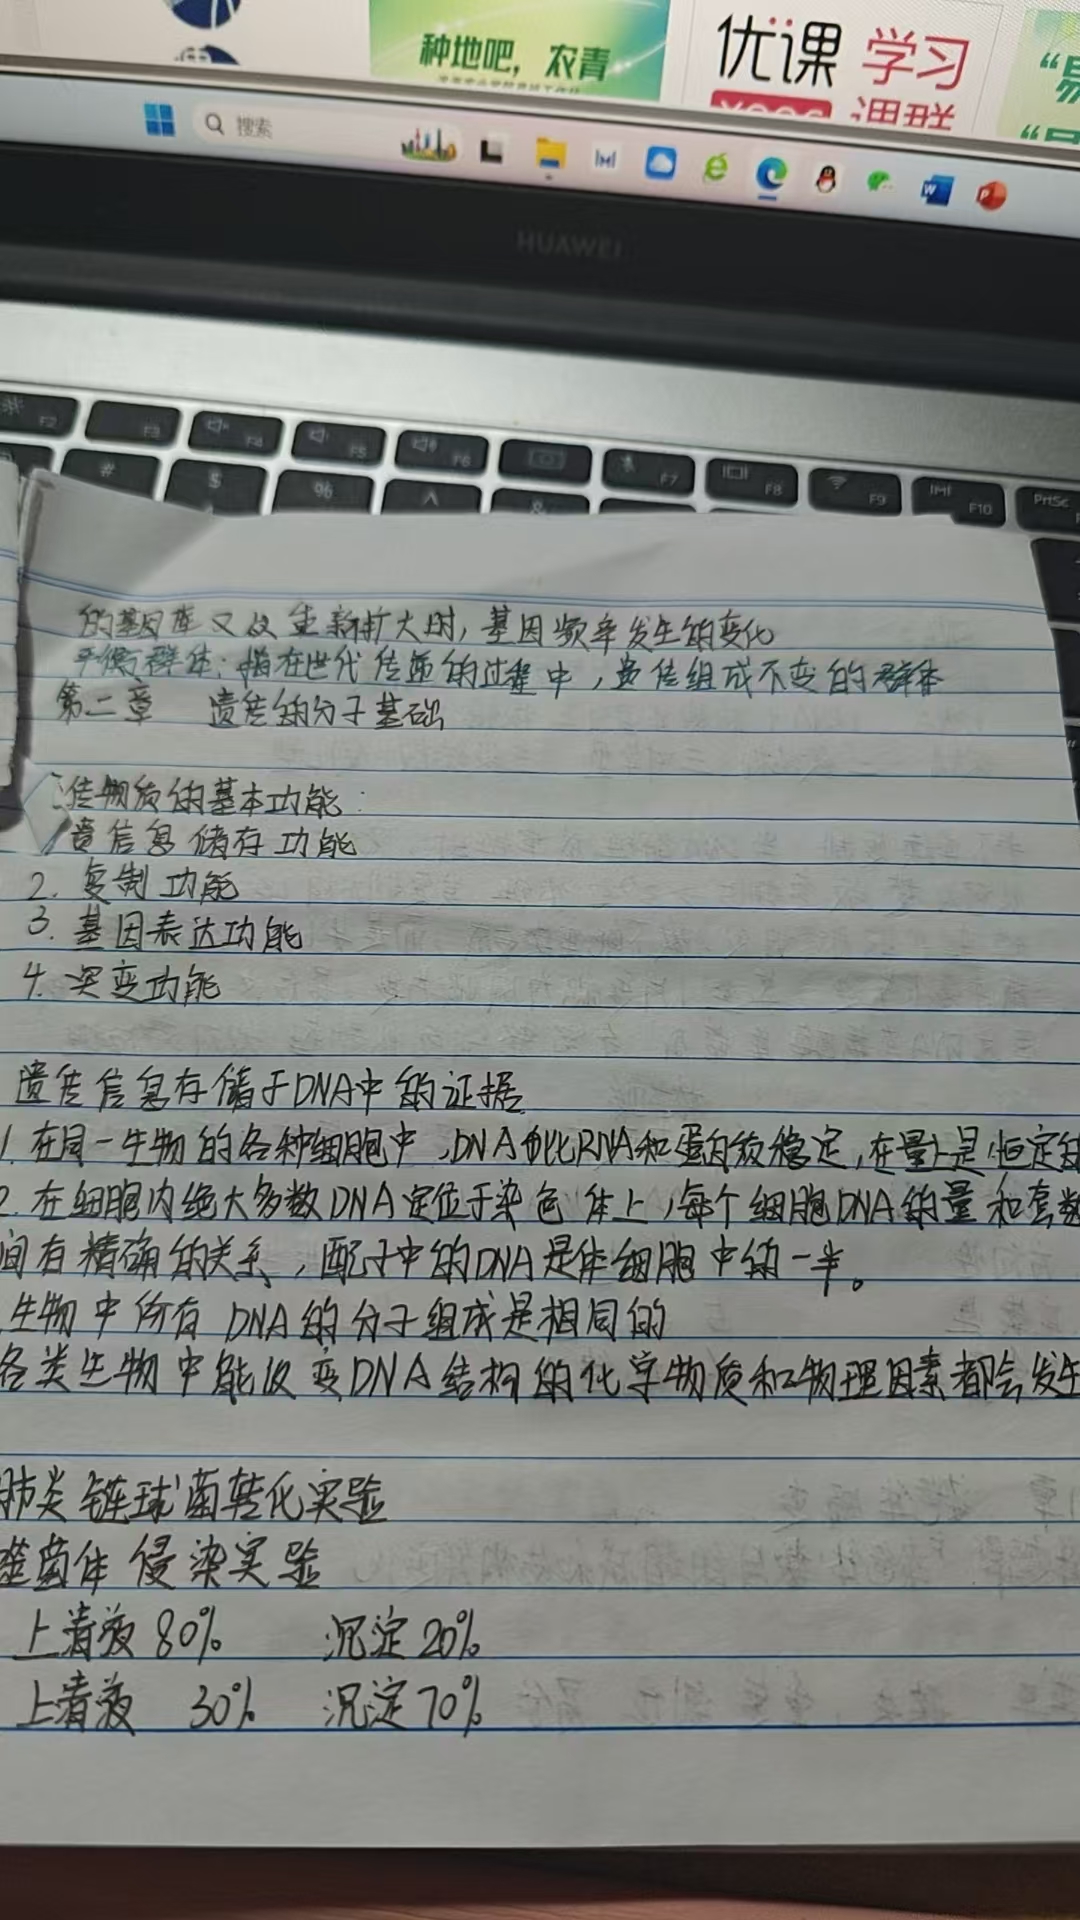 种地吧，农青
优课 学习
课群
搜索
HUAWEI
F2 F3 F4 F5 F6 F7 F8 F9 F10 PrtSc
# $ % ^ &
的基因库又仅重新扩大时，基因频率发生的变化
平衡群体：指在世代传递的过程中，遗传组成不变的群体
第二章 遗传的分子基础
传物质的基本功能：
遗信息储存功能
2. 复制功能
3. 基因表达功能
4. 突变功能
遗传信息存储于DNA中的证据
1. 在同一生物的各种细胞中，DNA也比RNA和蛋白质稳定，在量上是恒定的
2. 在细胞内绝大多数DNA定位于染色体上，每个细胞DNA的量和套数
间有精确的关系，配子中的DNA是体细胞中的一半。
生物中所有DNA的分子组成是相同的
各类生物中能改变DNA结构的化学物质和物理因素都会发生
肺炎链球菌转化实验
噬菌体侵染实验
上清液 80% 沉淀 20%
上清液 30% 沉淀 70%